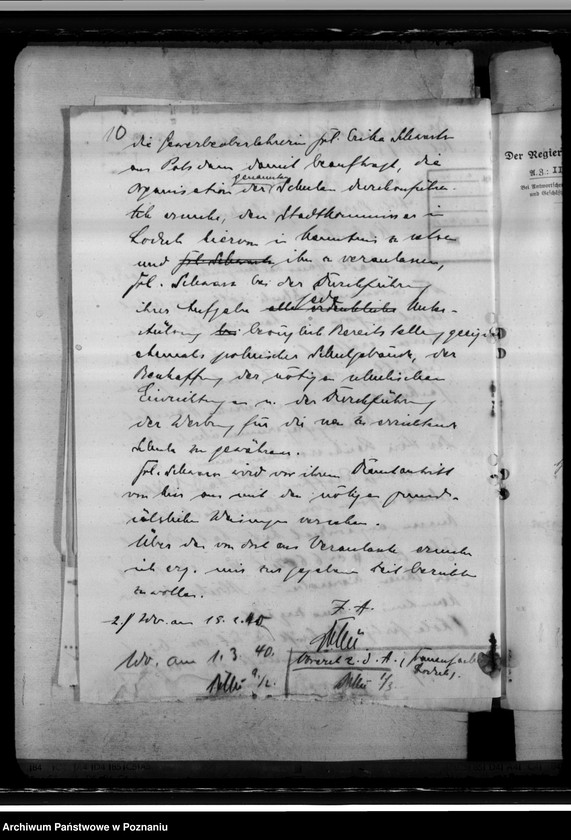 10
die Gewerbeoberlehrerin Frl. Erika Schwarz
aus Potsdam damit beauftragt, die
Organisation der genannten Schulen durchzuführen.
Ich ersuche, den Stadtkommissar in
Lodsch hiervon in Kenntnis zu setzen
und ihn zu veranlassen,
Frl. Schwarz bei der Durchführung
ihrer Aufgabe jede Unter-
stützung bezüglich Bereitstellung geeigneter
ehemals polnischer Schulgebäude, der
Beschaffung der nötigen schulischen
Einrichtungen u. der Durchführung
der Werbung für die neu zu errichtende
Schule zu gewähren.
Frl. Schwarz wird vor ihrem Dienstantritt
von hier aus mit den nötigen grund-
sätzlichen Weisungen versehen.
Über das von dort aus Veranlaßte ersuche
ich erg. mir zu gegebener Zeit berichten
zu wollen.
I. A.
2.) Wv. am 15. 2. 40
Wv. am 1. 3. 40.
z. d. A.
Der Regier
A.Z.: II
Bei Antwortschr
und Geschäf
Archiwum Państwowe w Poznaniu